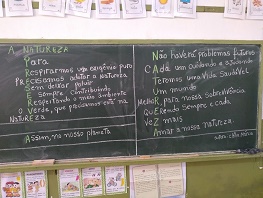 A NATUREZA
Para
Respirarmos um oxigênio puro
PrEcisamos adotar a Natureza
Sem deixar poluir
E sempre contribuindo
Respeitando o meio ambiente
O Verde, que precisamos está na
NATUREZA
Assim, no nosso planeta
Não haverá problemas futuros
CAda um cuidando e ajudando
Teremos uma Vida SaudáVeL
Um mundo
MelhoR, para nossa sobrevivência
QuErendo sempre e cada
VeZ mais
Amar a nossa natureza.